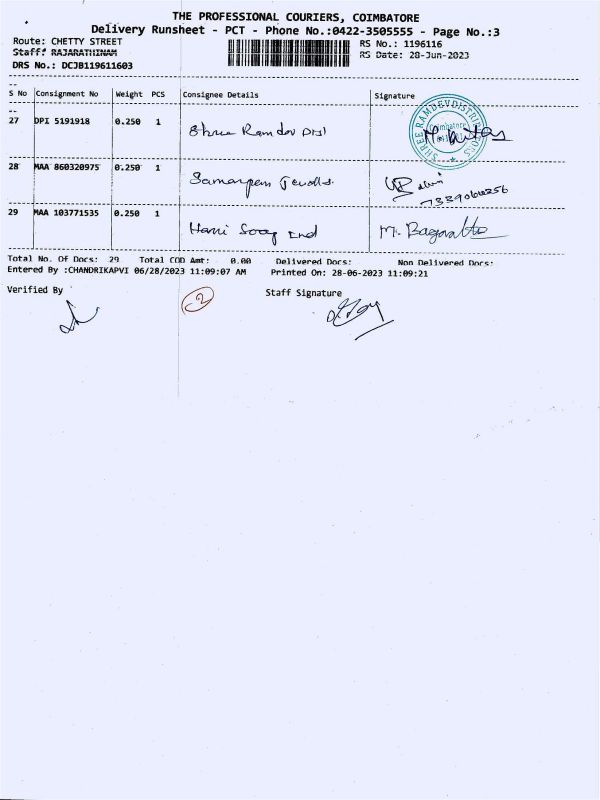 THE PROFESSIONAL COURIERS, COIMBATORE
Delivery Runsheet - PCT - Phone No.:0422-3505555 - Page No.:3
Route: CHETTY STREET RS No.: 1196116
Staff: RAJARATHINAM RS Date: 28-Jun-2023
DRS No.: DCJB119611603
S No Consignment No Weight PCS Consignee Details Signature
27 DPI 5191918 0.250 1 Shree Ramdev Dist
SHREE RAMDEV DISTRIBUTORS
Coimbatore
28 MAA 860320975 0.250 1 Jewells.
29 MAA 103771535 0.250 1 Hari Soap Ind
Total No. Of Docs: 29 Total COD Amt: 0.00 Delivered Docs: Non Delivered Docs:
Entered By :CHANDRIKAPVI 06/28/2023 11:09:07 AM Printed On: 28-06-2023 11:09:21
Verified By Staff Signature